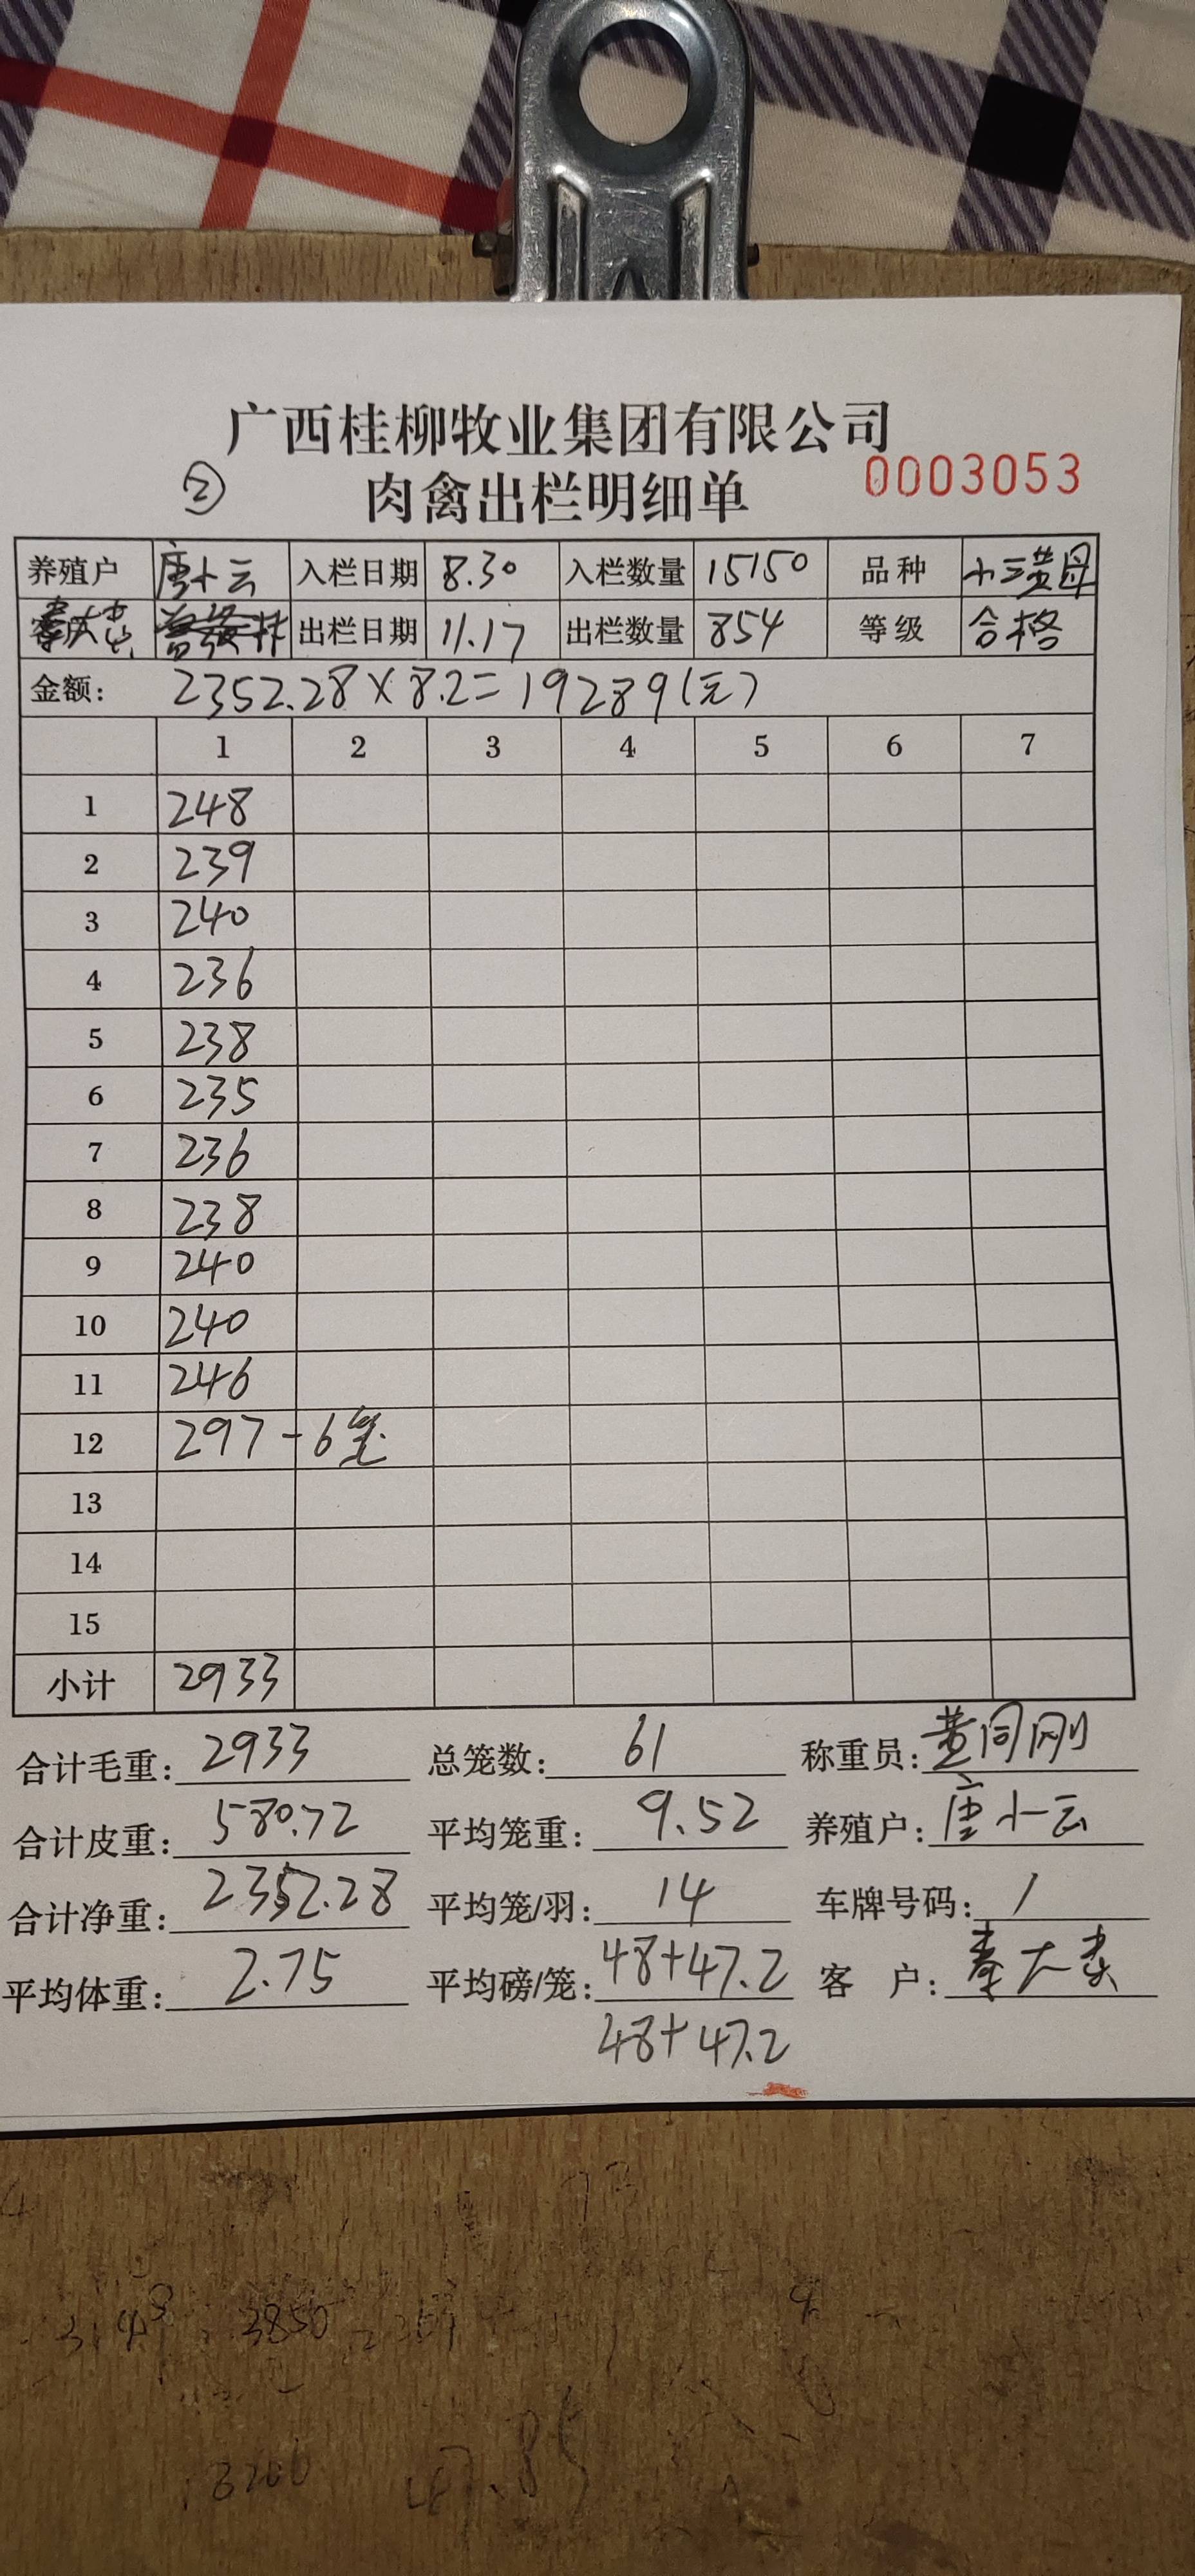 广西桂柳牧业集团有限公司
② 肉禽出栏明细单 0003053
养殖户 唐小云 入栏日期 8.30 入栏数量 15150 品种 小三黄母
出栏日期 11.17 出栏数量 854 等级 合格
金额: 2352.28×8.2=19289(元)
1 2 3 4 5 6 7
1 248
2 239
3 240
4 236
5 238
6 235
7 236
8 238
9 240
10 240
11 246
12 297-6笼
13
14
15
小计 2933
合计毛重: 2933 总笼数: 61 称重员: 黄同刚
合计皮重: 580.72 平均笼重: 9.52 养殖户: 唐小云
合计净重: 2352.28 平均笼/羽: 14 车牌号码: /
平均体重: 2.75 平均磅/笼: 48+47.2 客 户:
48+47.2
3850